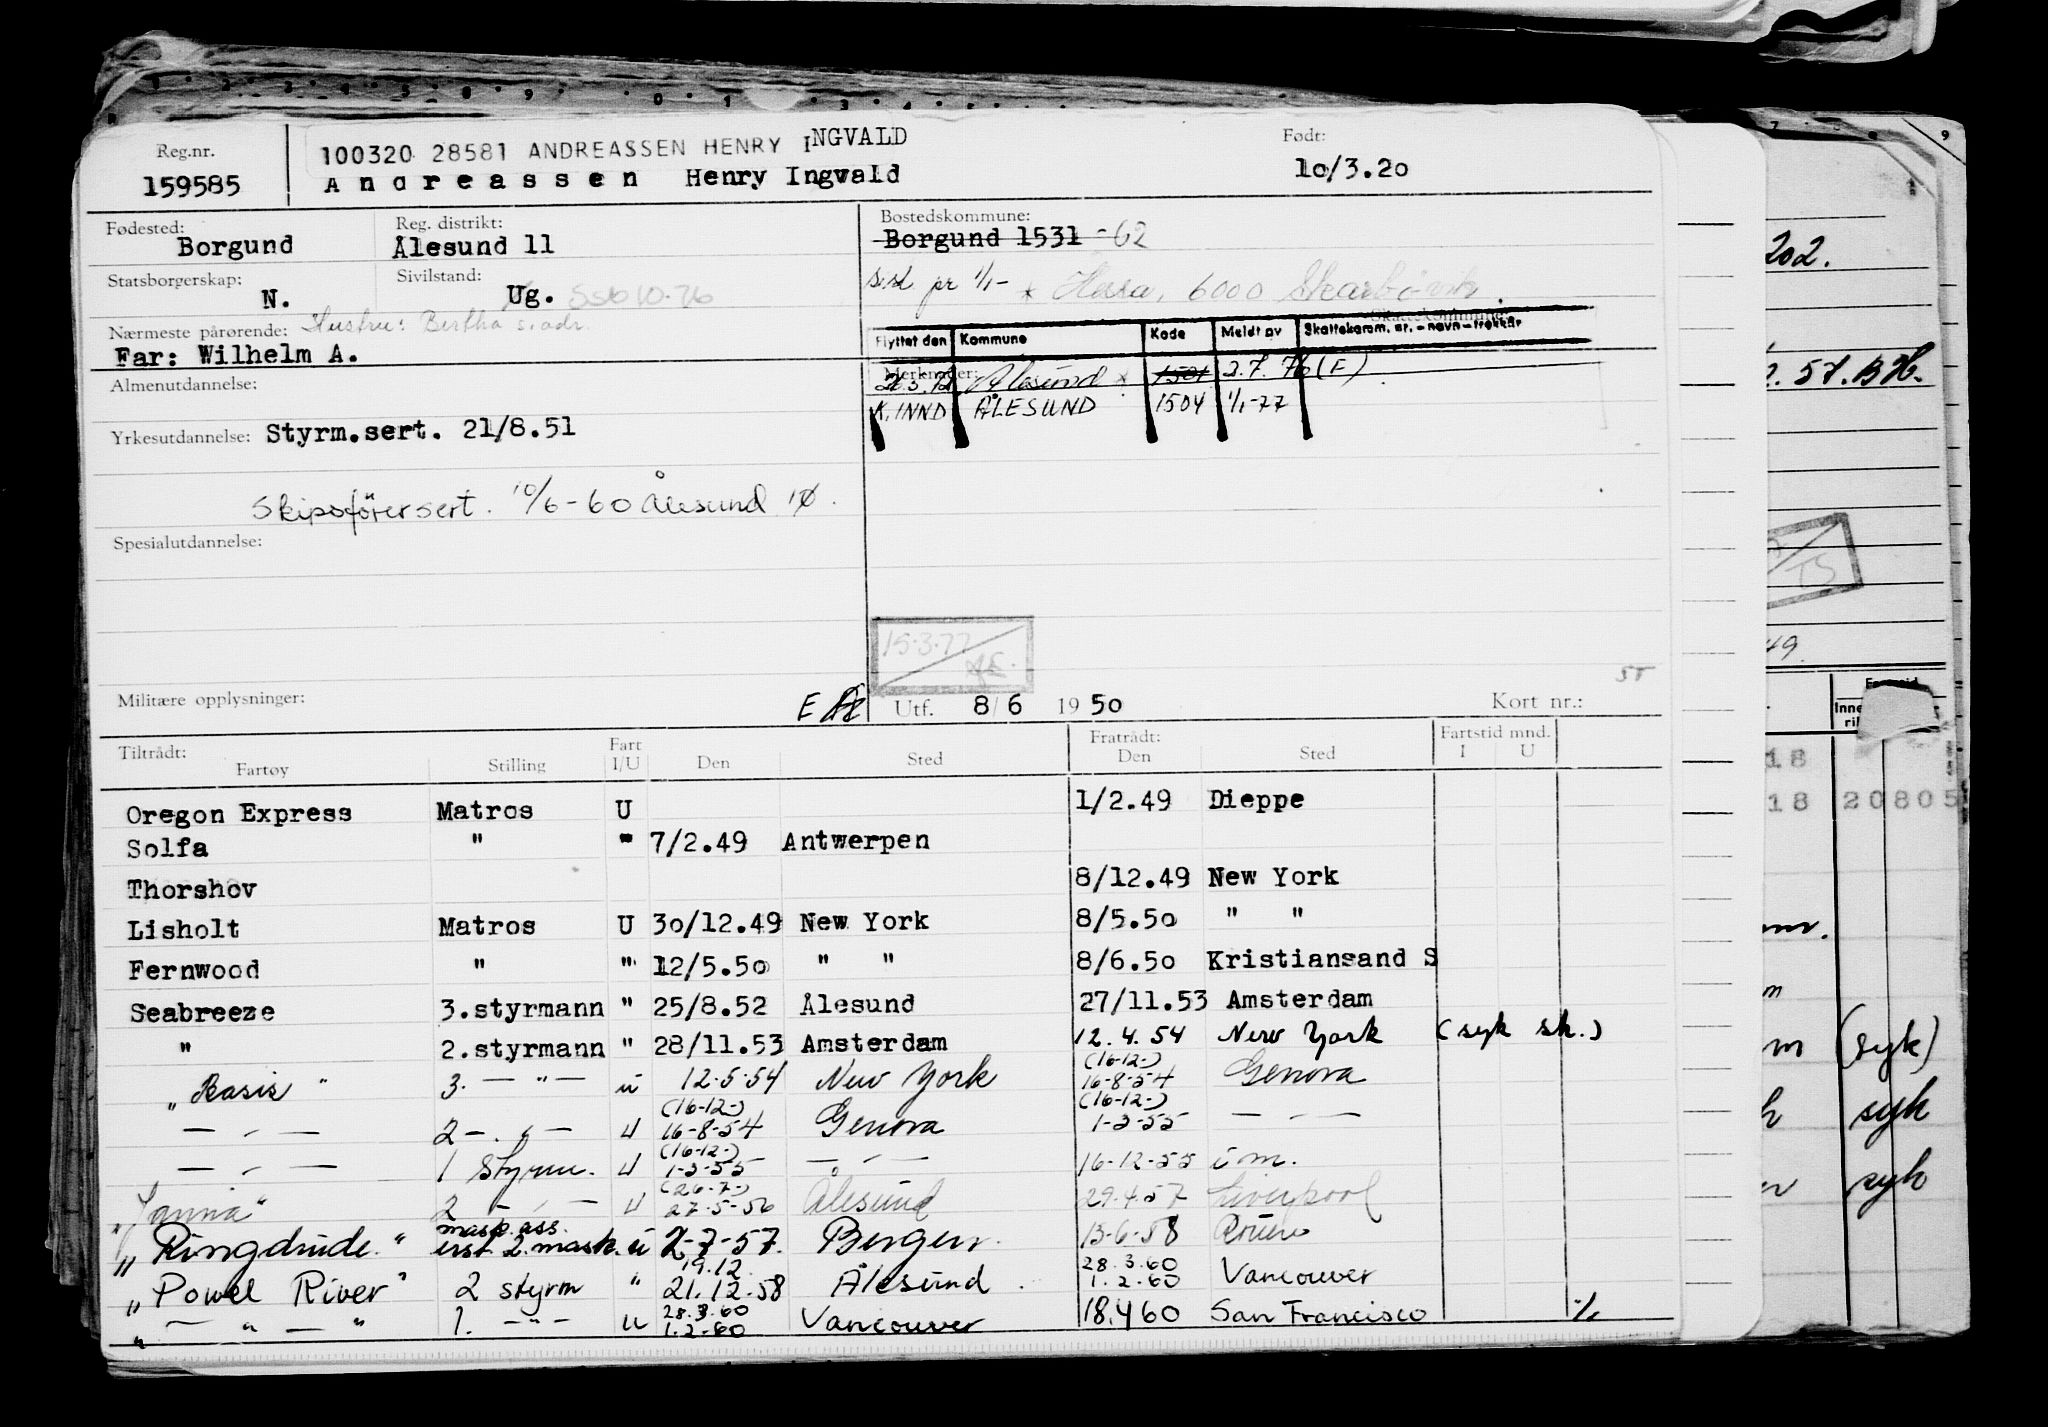 Reg.nr.
159585
100320 28581 ANDREASSEN HENRY INGVALD
Andreassen Henry Ingvald
Født:
10/3.20
Fødested:
Borgund
Reg. distrikt:
Ålesund 11
Bostedskommune:
Borgund 1531 -62
Statsborgerskap:
N.
Sivilstand:
Ug.
Skattekommune:
Nærmeste pårørende: Hustru: Bertha s.adr.
Far: Wilhelm A.
Flyttet den Kommune Kode Meldt av Skattekomm. nr. - navn - trekkår
Merknader:
Ålesund 1501 2.7.76 (E)
K.INND ÅLESUND 1504 1/1-77
Almenutdannelse:
Yrkesutdannelse: Styrm.sert. 21/8.51
Skipsförersert. 10/6-60 Ålesund
Spesialutdannelse:
15.3.77
Militære opplysninger:
Utf. 8/6 1950
Kort nr.:
Tiltrådt:
Fartøy Stilling Fart I/U Den Sted
Fratrådt:
Den Sted
Fartstid mnd.
I U
Oregon Express Matros U 1/2.49 Dieppe
Solfa " " 7/2.49 Antwerpen
Thorshov 8/12.49 New York
Lisholt Matros U 30/12.49 New York 8/5.50 " "
Fernwood " " 12/5.50 " " 8/6.50 Kristiansand S
Seabreeze 3.styrmann " 25/8.52 Ålesund 27/11.53 Amsterdam
" 2.styrmann " 28/11.53 Amsterdam 12.4.54 New York (syk sk.)
"Basis" 3. — " — u 12.5.54 New York (16-12-) 16-8-54 Genova
— " — 2 — " — u (16-12-) 16-8-54 Genova (16-12-) 1-3-55 — " —
— " — 1 styrm. u (16-12-) 1-3-55 — " — 16-12-55 i m.
"Janna" 2 — " — u (26-7-) 27-5-56 Ålesund 29.4.57 Liverpool
"Ringdrude" mask.ass. erst 2. mask. u 2-7-57. Bergen. 13-6-58 Rouen
"Powel River" 2 styrm " 19.12. 21.12.58 Ålesund 28.3.60 1.2.60 Vancouver
" — " — " 1. — " — u 28.3.60 1.2-60 Vancouver 18.4 60 San Francisco
202.
57.
18
18 20805
(syk)
syk
syk